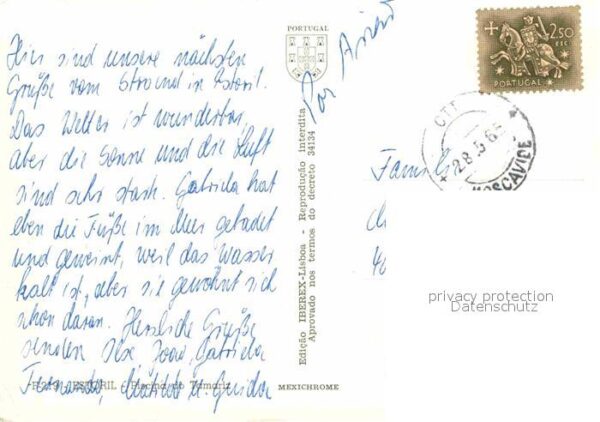 Hier sind unsere nächsten
Grüße vom Strand in Estoril.
Das Wetter ist wunderbar,
aber die Sonne und die Luft
sind sehr stark. Gabriela hat
eben die Füße im Meer gebadet
und geweint, weil das Wasser
kalt ist, aber sie gewöhnt sich
schon daran. Herzliche Grüße
senden Ilse, Joao, Gabriela
Fernando, Mathilde u. Guida
ESTORIL - Piscina do Tamariz
MEXICHROME
PORTUGAL
Edição IBEREX-Lisboa - Reprodução interdita
Aprovado nos termos do decreto 34134
Por Avião
2$50
ESC.
PORTUGAL
CTT
28.5.6
MOSCAVIDE
Famil
privacy protection
Datenschutz